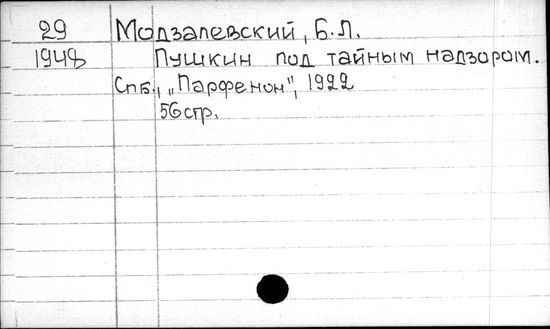 29 Модзалевский, Б.Л.
1948 Пушкин под тайным надзором.
Спб., „Парфенон", 1922
56 стр.